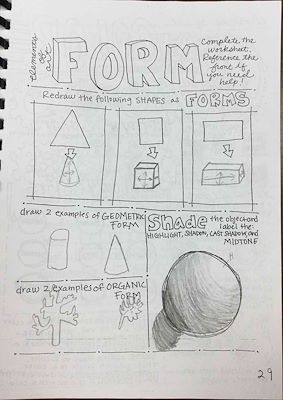 elements of art
FORM
Complete the
worksheet.
Reference the
front if
you need
help!
Redraw the following SHAPES as FORMS
draw 2 examples of GEOMETRIC
FORM
Shade the object and
label the:
HIGHLIGHT, SHADOW, CAST SHADOW, and
MIDTONE
H
draw 2 examples of ORGANIC
FORM
29